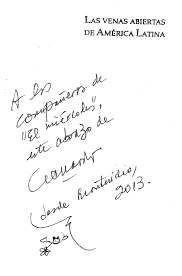 LAS VENAS ABIERTAS
DE AMÉRICA LATINA
A los
compañeros de
"El miércoles",
este abrazo de
Eduardo
desde Montevideo,
2013.